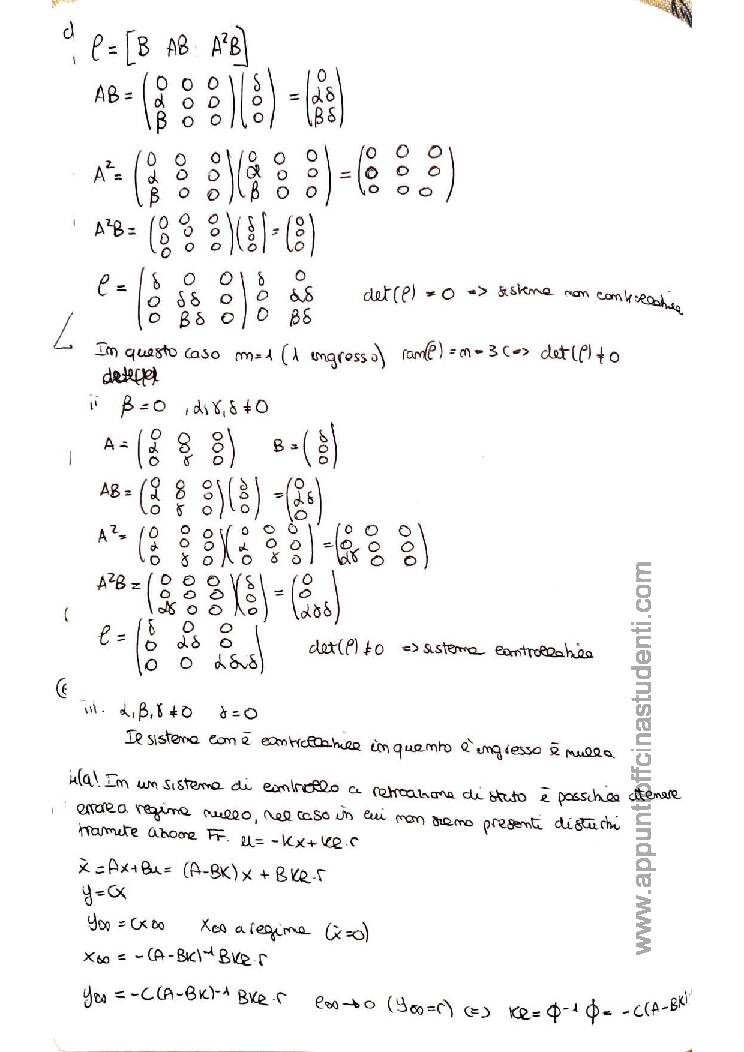 d
ρ = [B AB A²B]
AB = (0 0 0; α 0 0; β 0 0) (δ; 0; 0) = (0; αδ; βδ)
A² = (0 0 0; α 0 0; β 0 0) (0 0 0; α 0 0; β 0 0) = (0 0 0; 0 0 0; 0 0 0)
A²B = (0 0 0; 0 0 0; 0 0 0) (δ; 0; 0) = (0; 0; 0)
ρ = (δ 0 0; 0 δδ 0; 0 βδ 0) δ 0; 0 αδ; 0 βδ det(ρ) = 0 => sistema non controllabile
In questo caso m=1 (1 ingresso) ran(ρ) = n = 3 <=> det(ρ) ≠ 0
ii β=0 , α, γ, δ ≠ 0
A = (0 0 0; α 0 0; 0 γ 0) B = (δ; 0; 0)
AB = (0 0 0; α 0 0; 0 γ 0) (δ; 0; 0) = (0; αδ; 0)
A² = (0 0 0; α 0 0; 0 γ 0) (0 0 0; α 0 0; 0 γ 0) = (0 0 0; 0 0 0; αγ 0 0)
A²B = (0 0 0; 0 0 0; αγ 0 0) (δ; 0; 0) = (0; 0; αγδ)
ρ = (δ 0 0; 0 αδ 0; 0 0 αγδ) det(ρ) ≠ 0 => sistema controllabile
iii. α, β, γ ≠ 0 δ = 0
Il sistema non è controllabile in quanto l'ingresso è nullo
In un sistema di controllo a retroazione di stato è possibile ottenere
errore a regime nullo, nel caso in cui non siano presenti disturbi
tramite azione FF. u = -Kx + Kr·r
ẋ = Ax + Bu = (A-BK)x + BKr·r
y = Cx
y∞ = Cx∞ x∞ a regime (ẋ=0)
x∞ = -(A-BK)⁻¹ BKr·r
y∞ = -C(A-BK)⁻¹ BKr·r e∞→0 (y∞=r) <=> Kr = ϕ⁻¹ ϕ = -C(A-BK)⁻¹
www.appuntiofficinastudenti.com